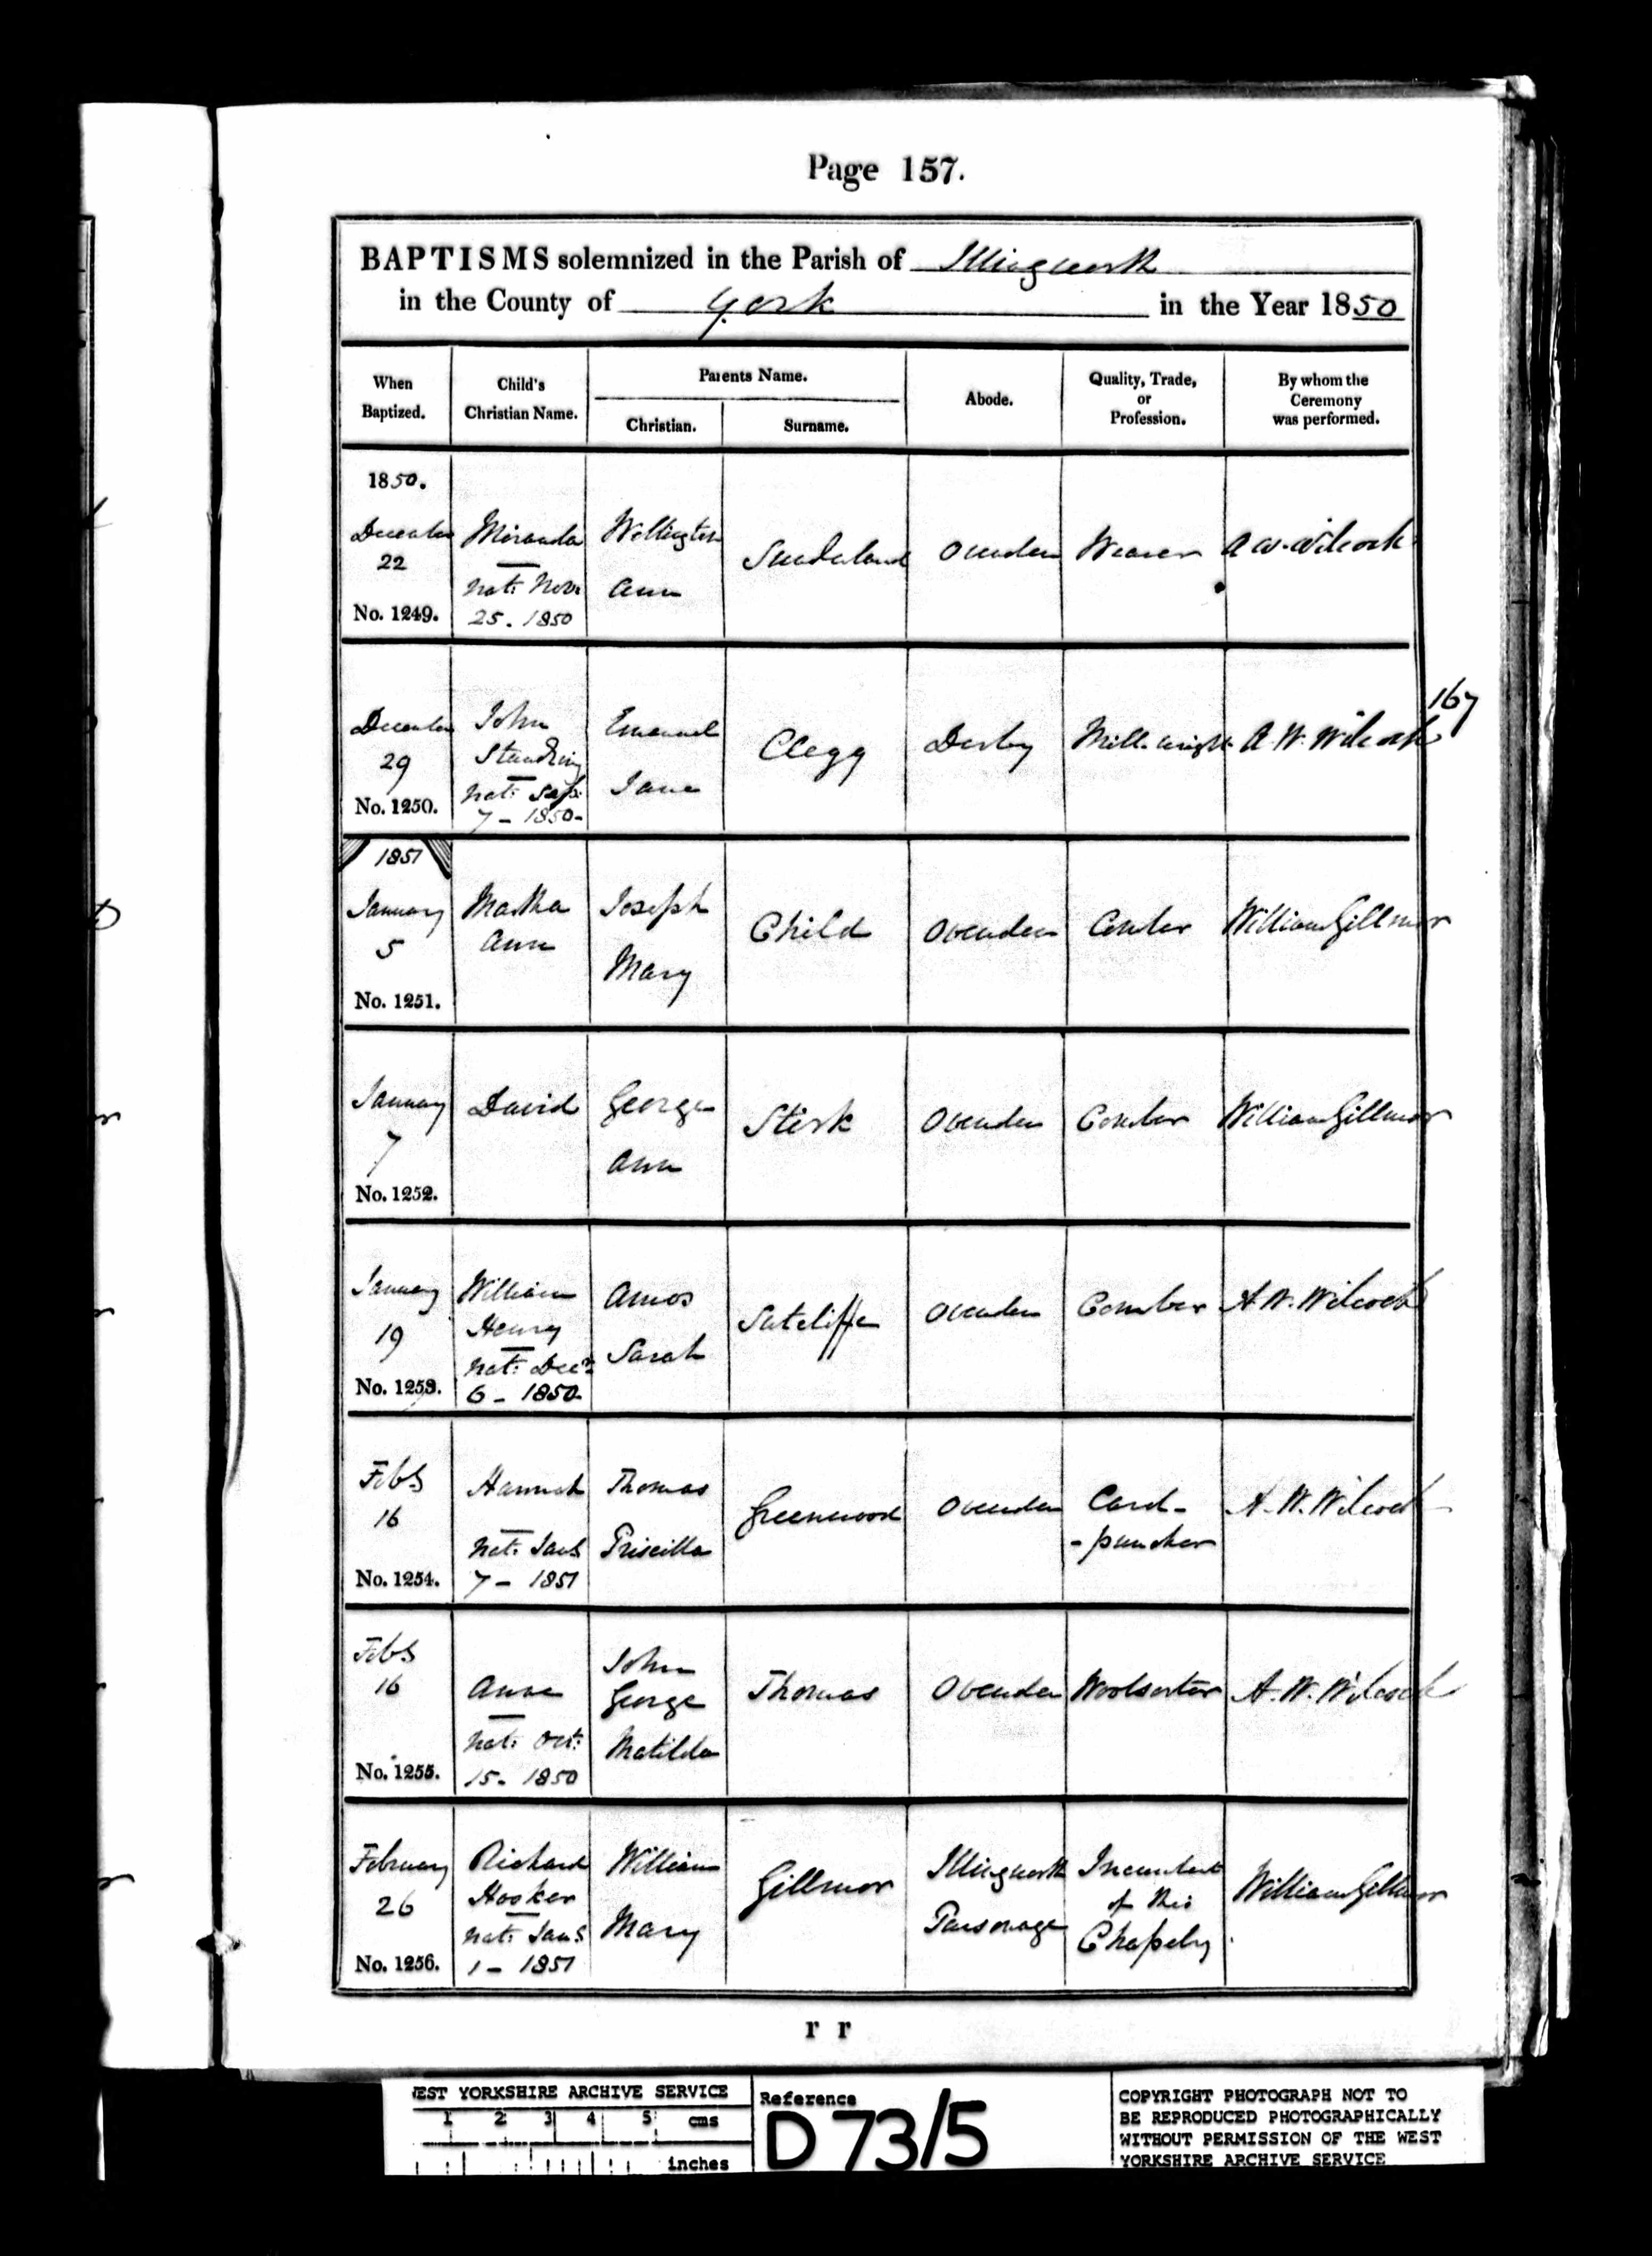 Page 157.
BAPTISMS solemnized in the Parish of Illingworth
in the County of York in the Year 1850
When Baptized. Child's Christian Name. Parents Name. Christian. Surname. Abode. Quality, Trade, or Profession. By whom the Ceremony was performed.
1850.
December 22 No. 1249.
Miranda
nat: Nov: 25. 1850
Wellington
Ann
Sunderland
Ovenden
Weaver
A W. Wilcock
167
December 29 No. 1250.
John Standring
nat: Sep: 7 - 1850 -
Emanuel
Jane
Clegg
Derby
Mill-wright
A. W. Wilcock
1851
January 5 No. 1251.
Martha Ann
Joseph
Mary
Child
Ovenden
Comber
William Gillmor
January 7 No. 1252.
David
George
Ann
Stirk
Ovenden
Comber
William Gillmor
January 19 No. 1253.
William Henry
nat: Decr 6 - 1850.
Amos
Sarah
Sutcliffe
Ovenden
Comber
A. W. Wilcock
Feby 16 No. 1254.
Hannah
nat: Jany 7 - 1851
Thomas
Priscilla
Greenwood
Ovenden
Card-
-puncher
A. W. Wilcock
Feby 16 No. 1255.
Anne
nat: Oct: 15. 1850
John George
Matilda
Thomas
Ovenden
Woolsorter
A. W. Wilcock
February 26 No. 1256.
Richard Hooker
nat: Jany 1 - 1851
William
Mary
Gillmor
Illingworth
Parsonage
Incumbent
of this
Chapelry
William Gillmor
r r
WEST YORKSHIRE ARCHIVE SERVICE
1 2 3 4 5 cms
inches
Reference
D73/5
COPYRIGHT PHOTOGRAPH NOT TO
BE REPRODUCED PHOTOGRAPHICALLY
WITHOUT PERMISSION OF THE WEST
YORKSHIRE ARCHIVE SERVICE